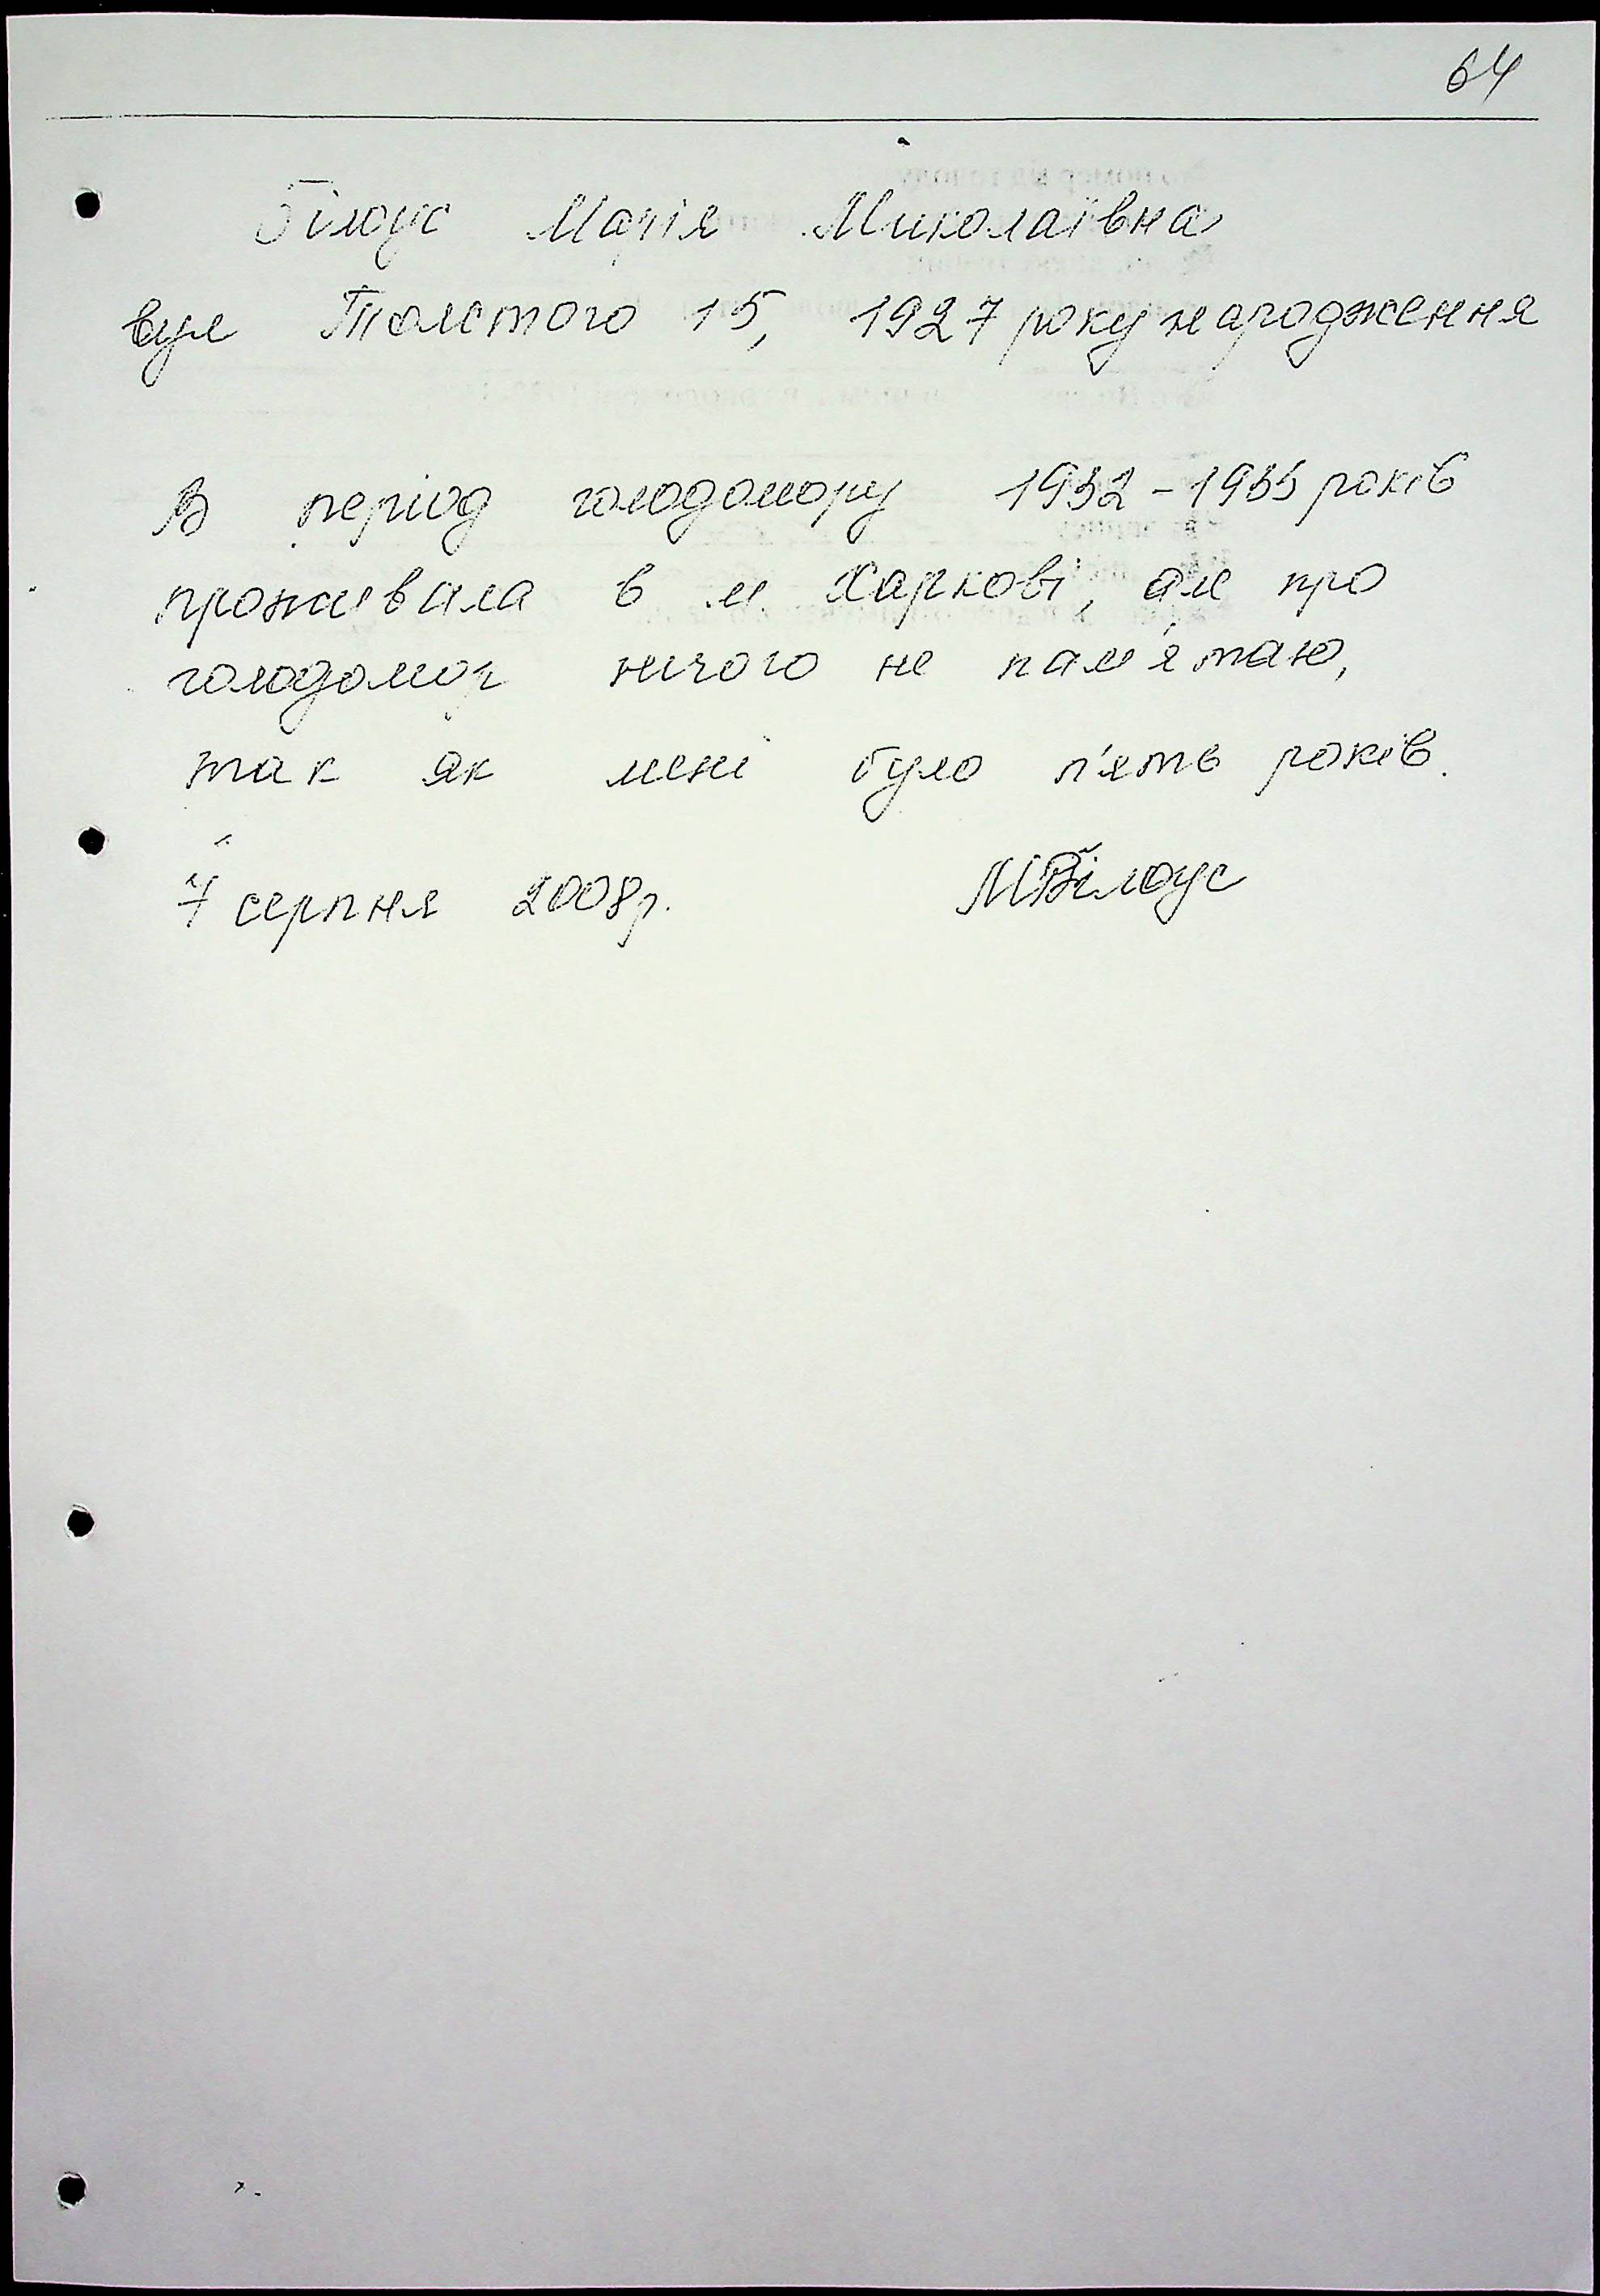 64
Білоус Марія Миколаївна
вул Толстого 15, 1927 року народження
В період голодомору 1932-1933 років
проживала в м. Харкові, але про
голодомор нічого не пам'ятаю,
так як мені було п'ять років.
7 серпня 2008р. МБілоус